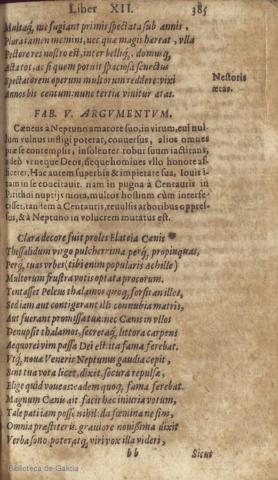 Liber XII. 385
Multaq́, me fugiant primis spectata sub annis,
Plura tamen memini, nec qua magis hæreat, vlla
Pectore res nostro est, inter belliq́, domiq́,
Acta tot, ac si quem potuit spaciosa senectus
Spectatorem operum multorum reddere: vixi
Annos bis centum: nunc tertia viuitur ætas.
Nestoris
ætas.
FAB. V. ARGVMENTVM.
Cæneus a Neptuno amatore suo, in virum, cui nul-
lum vulnus infligi poterat, conuersus, alios omnes
præ se contemplit, insolenter robur suum iactitans,
adeò vt neque Deos, neque homines vllo honore af-
ficeret. Hac autem superbia & impietate sua, Iouis i-
ram in se concitauit. nam in pugna à Centauris in
Pirithoi nuptijs mota, multos hostium cùm interfe-
cisset, tandem à Centauris, reuulsis arboribus oppres-
sus, & à Neptuno in volucrem mutatus est.
Clara decore fuit proles Elateia Cænis
Thessalidum virgo pulcherrima perq́, propinquas,
Perq́, tuas vrbes (tibi enim popularis Achille)
Multorum frustra votis optata procorum.
Tentasset Peleus thalamos quoq́, forsitan illos,
Sed iam aut contigerant illi connubia matris,
Aut fuerant promissa tuæ: nec Cænis in vllos
Denupsit thalamos, secretaq́, littora carpens
Aequorei vim passa Dei est. ita fama ferebat.
Vtq́, noua Veneris Neptunus gaudia cepit,
Sint tua vota licet, dixit, secura repulsæ,
Elige quid voueas: eadem quoq́, fama ferebat.
Magnum Cænis ait, facit hæc iniuria votum,
Tale pati iam posse nihil: da fœmina ne sim,
Omnia præstiteris. grauiore nouissima dixit
Verba sono, poteratq́, viri vox illa videri,
bb Sicut
Biblioteca de Galicia